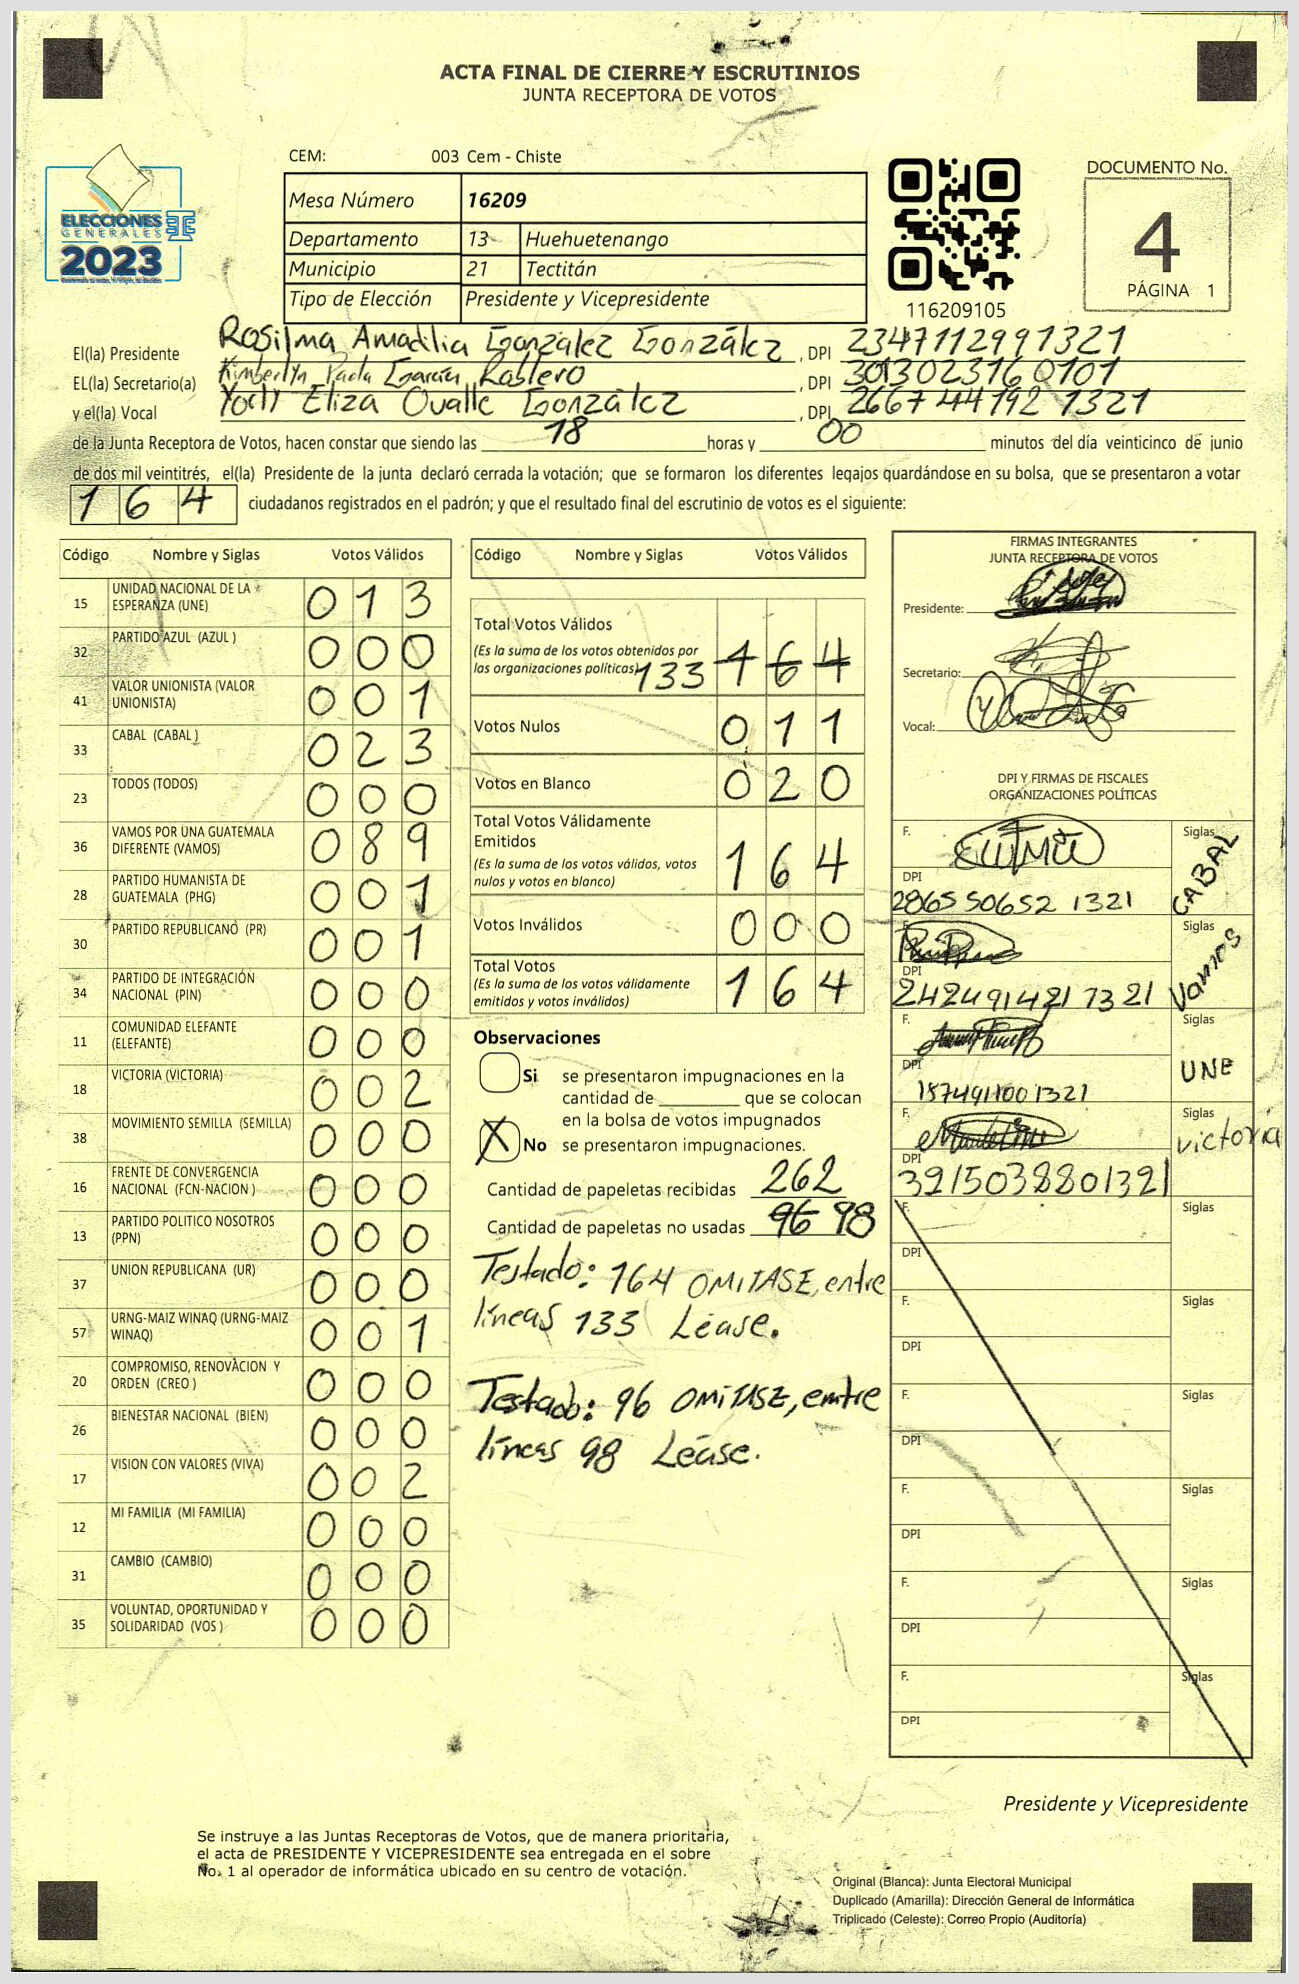 ACTA FINAL DE CIERRE Y ESCRUTINIOS
JUNTA RECEPTORA DE VOTOS
CEM: 003 Cem - Chiste
ELECCIONES
GENERALES
2023
Mesa Número 16209
Departamento 13 Huehuetenango
Municipio 21 Tectitán
Tipo de Elección Presidente y Vicepresidente
116209105
DOCUMENTO No.
4
PÁGINA 1
El(la) Presidente Rosilma Amadilia González González, DPI 2347112991321
EL(la) Secretario(a) Kimberlyn Paola García Roblero, DPI 301302316 0101
y el(la) Vocal Yoely Eliza Ovalle González, DPI 2667 44192 1321
de la Junta Receptora de Votos, hacen constar que siendo las 18 horas y 00 minutos del día veinticinco de junio
de dos mil veintitrés, el(la) Presidente de la junta declaró cerrada la votación; que se formaron los diferentes legajos quardándose en su bolsa, que se presentaron a votar
164 ciudadanos registrados en el padrón; y que el resultado final del escrutinio de votos es el siguiente:
Código Nombre y Siglas Votos Válidos
15 UNIDAD NACIONAL DE LA ESPERANZA (UNE) 013
32 PARTIDO AZUL (AZUL ) 000
41 VALOR UNIONISTA (VALOR UNIONISTA) 001
33 CABAL (CABAL ) 023
23 TODOS (TODOS) 000
36 VAMOS POR UNA GUATEMALA DIFERENTE (VAMOS) 089
28 PARTIDO HUMANISTA DE GUATEMALA (PHG) 001
30 PARTIDO REPUBLICANO (PR) 001
34 PARTIDO DE INTEGRACIÓN NACIONAL (PIN) 000
11 COMUNIDAD ELEFANTE (ELEFANTE) 000
18 VICTORIA (VICTORIA) 002
38 MOVIMIENTO SEMILLA (SEMILLA) 000
16 FRENTE DE CONVERGENCIA NACIONAL (FCN-NACION ) 000
13 PARTIDO POLITICO NOSOTROS (PPN) 000
37 UNION REPUBLICANA (UR) 000
57 URNG-MAIZ WINAQ (URNG-MAIZ WINAQ) 001
20 COMPROMISO, RENOVACION Y ORDEN (CREO ) 000
26 BIENESTAR NACIONAL (BIEN) 000
17 VISION CON VALORES (VIVA) 002
12 MI FAMILIA (MI FAMILIA) 000
31 CAMBIO (CAMBIO) 000
35 VOLUNTAD, OPORTUNIDAD Y SOLIDARIDAD (VOS ) 000
Código Nombre y Siglas Votos Válidos
Total Votos Válidos
(Es la suma de los votos obtenidos por
las organizaciones políticas) 133 164
Votos Nulos 011
Votos en Blanco 020
Total Votos Válidamente
Emitidos
(Es la suma de los votos válidos, votos
nulos y votos en blanco) 164
Votos Inválidos 000
Total Votos
(Es la suma de los votos válidamente
emitidos y votos inválidos) 164
Observaciones
Si se presentaron impugnaciones en la
cantidad de ________ que se colocan
en la bolsa de votos impugnados
X No se presentaron impugnaciones.
Cantidad de papeletas recibidas 262
Cantidad de papeletas no usadas 96 98
Testado: 164 OMITASE, entre
líneas 133 Léase.
Testado: 96 OMITASE, entre
líneas 98 Léase.
FIRMAS INTEGRANTES
JUNTA RECEPTORA DE VOTOS
Presidente:
Secretario:
Vocal:
DPI Y FIRMAS DE FISCALES
ORGANIZACIONES POLÍTICAS
F. Siglas CABAL
DPI
2865 50652 1321
F. Siglas VAMOS
DPI
2424914217321
F. Siglas UNE
DPI
1574911001321
F. Siglas victoria
DPI
3215038801321
F. Siglas
DPI
F. Siglas
DPI
F. Siglas
DPI
F. Siglas
DPI
F. Siglas
DPI
F. Siglas
DPI
Presidente y Vicepresidente
Se instruye a las Juntas Receptoras de Votos, que de manera prioritaria,
el acta de PRESIDENTE Y VICEPRESIDENTE sea entregada en el sobre
No. 1 al operador de informática ubicado en su centro de votación.
Original (Blanca): Junta Electoral Municipal
Duplicado (Amarilla): Dirección General de Informática
Triplicado (Celeste): Correo Propio (Auditoría)